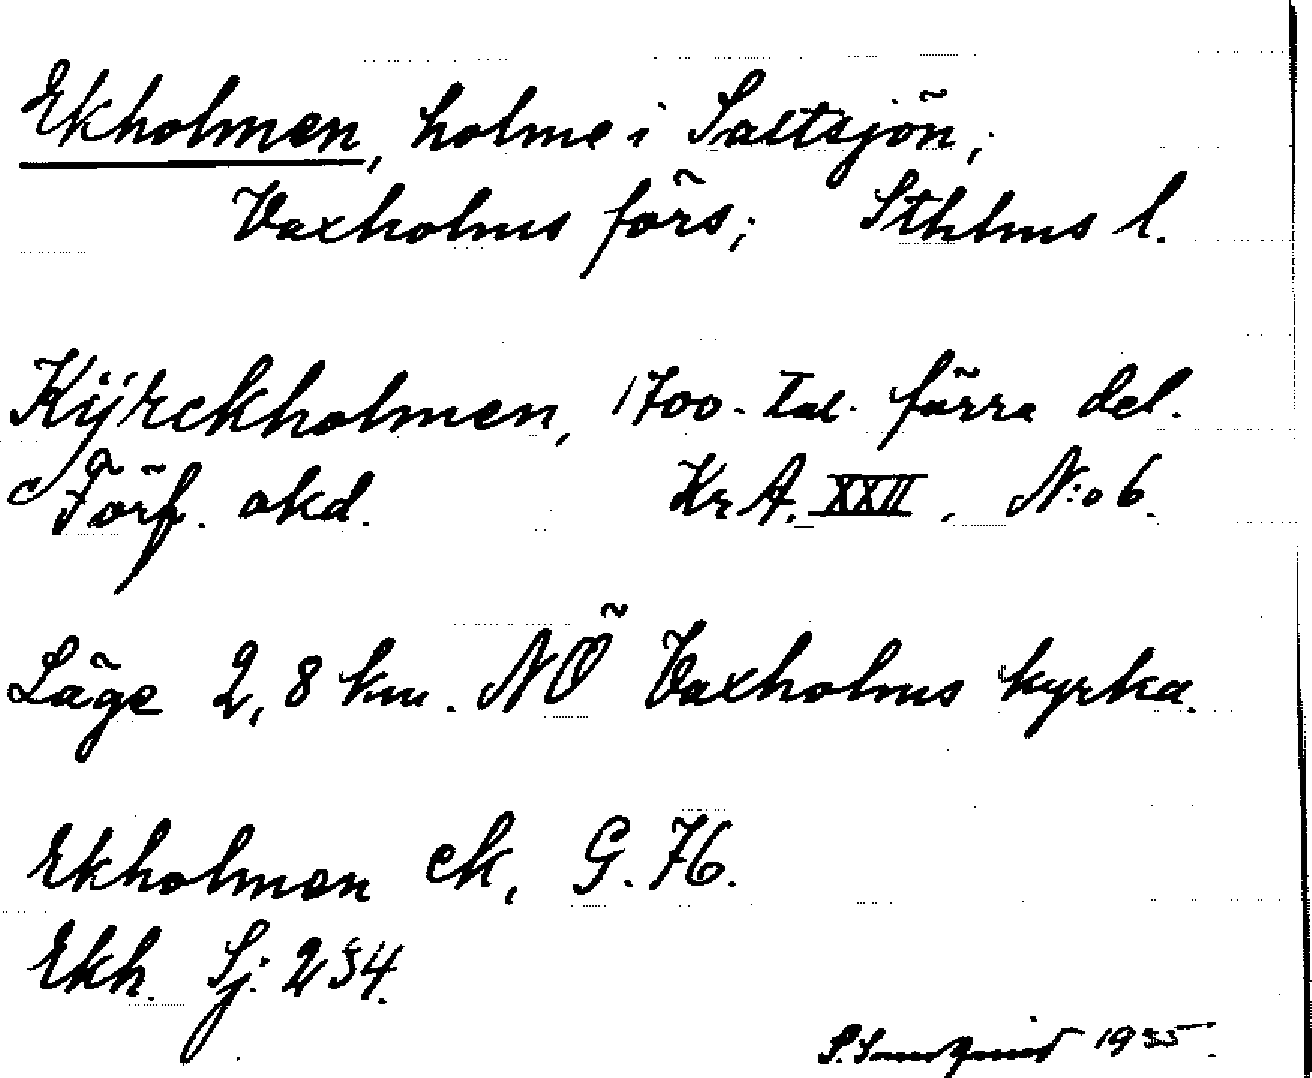 Ekholmen, holme i Saltsjön,
Vaxholms förs; Sthlms l.
Kÿrckholmen, 1700-tal. förra del.
Förf. okd. Kr A. XXII, N:o 6.
Läge 2,8 km. NÖ Vaxholms kyrka.
Ekholmen ek, G. 76.
Ekh. Sj: 234.
1935